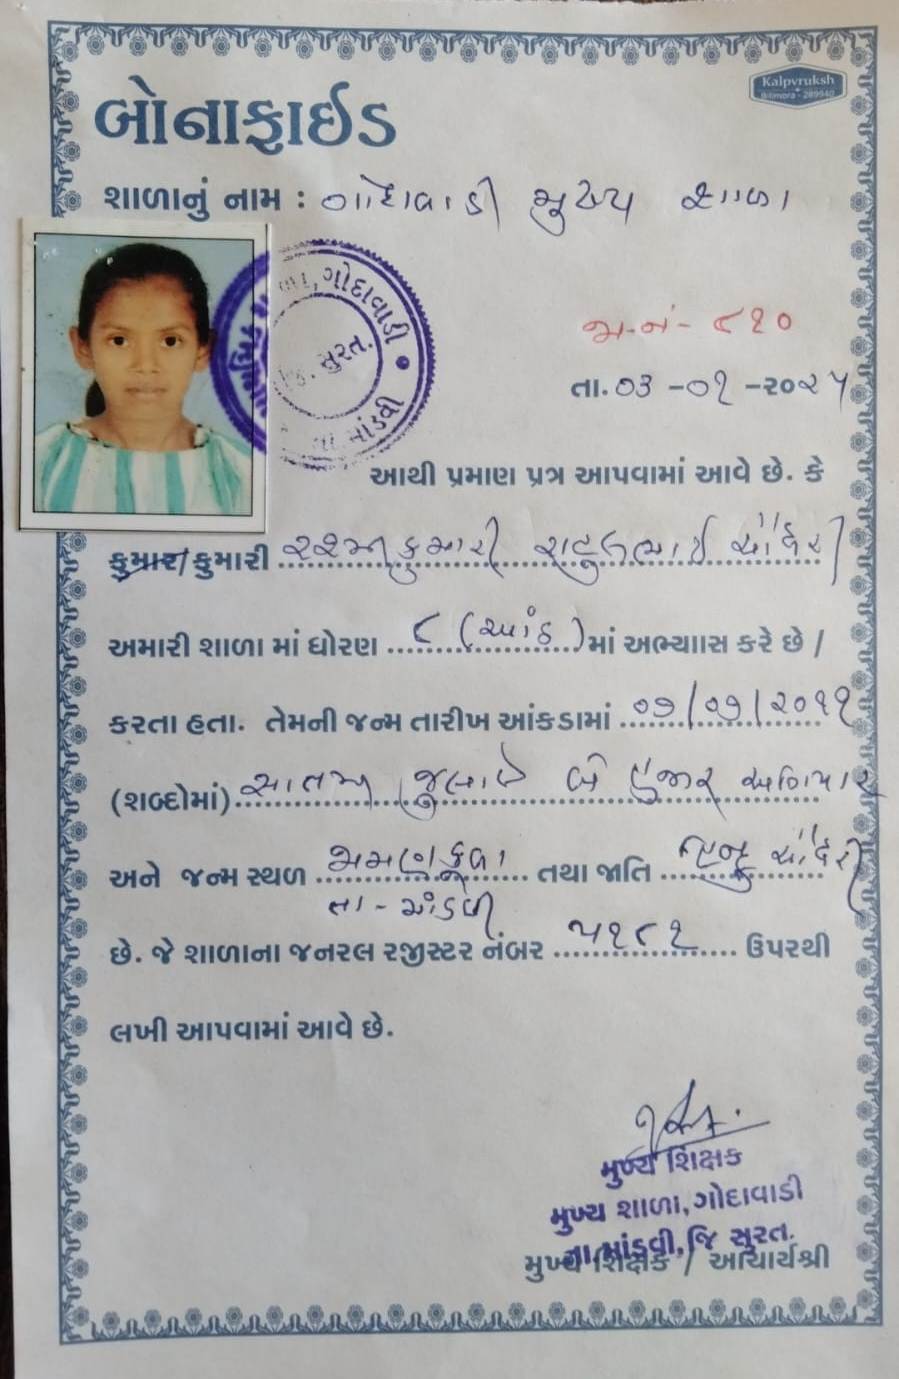 Kalpvruksh
Bilimora - 289940
બોનાફાઈડ
શાળાનું નામ : ગોદાવાડી મુખ્ય શાળા
ગોદાવાડી
જિ. સુરત.
તા. માંડવી
જા.નં - ૮૧૦
તા. ૦૩ -૦૧ -૨૦૨૫
આથી પ્રમાણ પત્ર આપવામાં આવે છે. કે
કુમાર/કુમારી રાહુલભાઈ ચૌધરી
અમારી શાળા માં ધોરણ ૮ (આઠ) માં અભ્યાાસ કરે છે /
કરતા હતા. તેમની જન્મ તારીખ આંકડામાં ૦૭/૦૭/૨૦૧૧
(શબ્દોમાં) સાતમી જુલાઈ બે હજાર અગિયાર
અને જન્મ સ્થળ તથા જાતિ હિન્દુ ચૌધરી
તા - માંડવી
છે. જે શાળાના જનરલ રજીસ્ટર નંબર ૫૧૮૧ ઉપરથી
લખી આપવામાં આવે છે.
મુખ્ય શિક્ષક
મુખ્ય શાળા, ગોદાવાડી
તા માંડવી, જિ સુરત.
મુખ્ય શિક્ષક / આચાર્યશ્રી